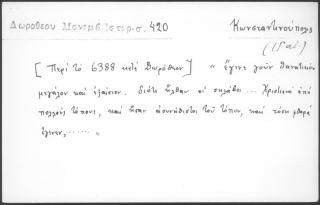 Δωροθέου Μονεμβ. Ἱστορ. σ. 420
Κωνσταντινούπολις
(15 αἰ.)
[Περὶ τὸ 6388 κατὰ Δωρόθεον] " ἔγινε γοῦν θανατικὸν
μεγάλον καὶ ἐξαίσιον. διότι ἦλθαν οἱ σκλάβοι ... Χριστιανοὶ ἀπὸ
πολλοὺς τόπους, καὶ ἦσαν ἀσυνήθιστοι τοῦ τόπου, καὶ τόση φθορὰ
ἔγινεν, ...... "